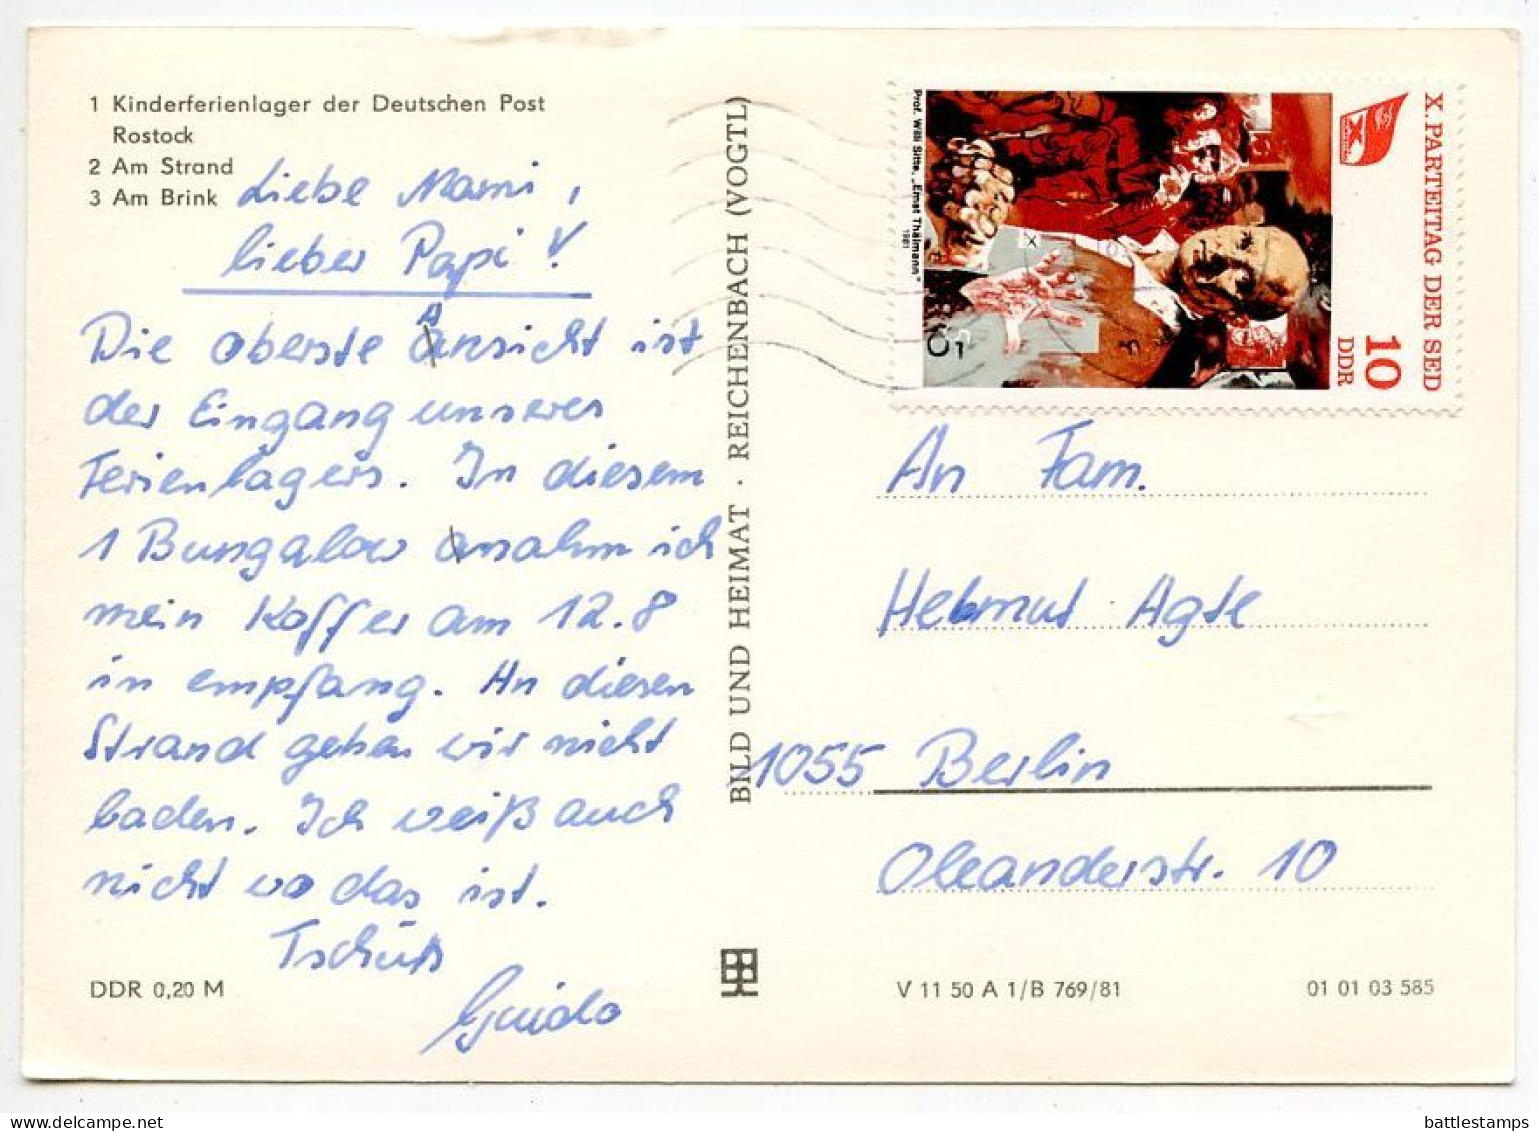 1 Kinderferienlager der Deutschen Post
Rostock
2 Am Strand
3 Am Brink
Liebe Mami,
lieber Papi!
Die oberste Ansicht ist
der Eingang unseres
Ferienlagers. In diesem
1 Bungalow annahm ich
mein Koffer am 12.8
in empfang. An diesen
Strand gehen wir nicht
baden. Ich weiß auch
nicht wo das ist.
Tschüß
Guido
DDR 0,20 M
BILD UND HEIMAT · REICHENBACH (VOGTL)
X. PARTEITAG DER SED
10
DDR
Prof. Willi Sitte, „Ernst Thälmann"
1981
An Fam.
Helmut Agte
1055 Berlin
Oleanderstr. 10
V 11 50 A 1/B 769/81
01 01 03 585
delcampe.net
battlestamps